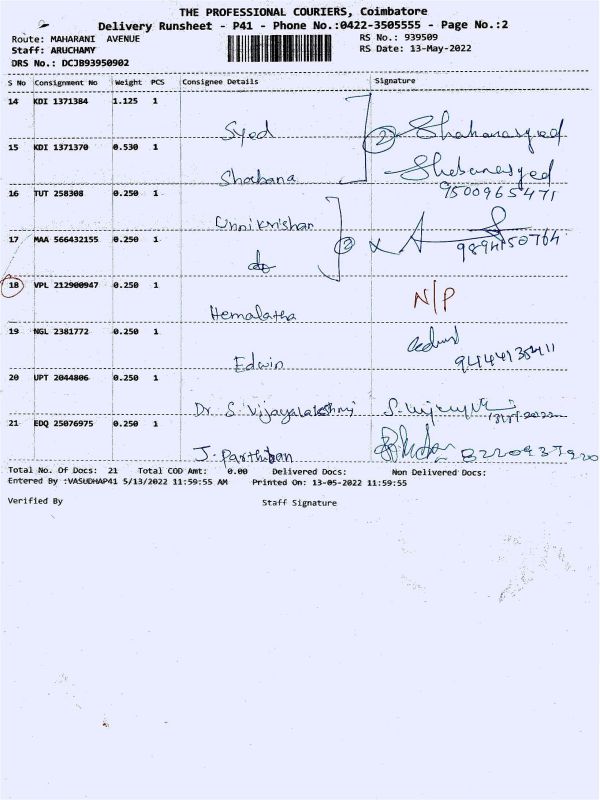 THE PROFESSIONAL COURIERS, Coimbatore
Delivery Runsheet - P41 - Phone No.:0422-3505555 - Page No.:2
Route: MAHARANI AVENUE RS No.: 939509
Staff: ARUCHAMY RS Date: 13-May-2022
DRS No.: DCJB93950902
S No Consignment No Weight PCS Consignee Details Signature
14 KDI 1371384 1.125 1
Syed 2 Shahanasyed
15 KDI 1371370 0.530 1
Shahana
9500965471
16 TUT 258308 0.250 1
Unnikrishnan
17 MAA 566432155 0.250 1
do 2 x
9894150764
18 VPL 212900947 0.250 1
Hemalatha N/P
19 NGL 2381772 0.250 1
Edwin
20 UPT 2044806 0.250 1
Dr S. Vijayalakshmi
21 EDQ 25076975 0.250 1
J. Parthiban 8220937920
Total No. Of Docs: 21 Total COD Amt: 0.00 Delivered Docs: Non Delivered Docs:
Entered By :VASUDHAP41 5/13/2022 11:59:55 AM Printed On: 13-05-2022 11:59:55
Verified By Staff Signature